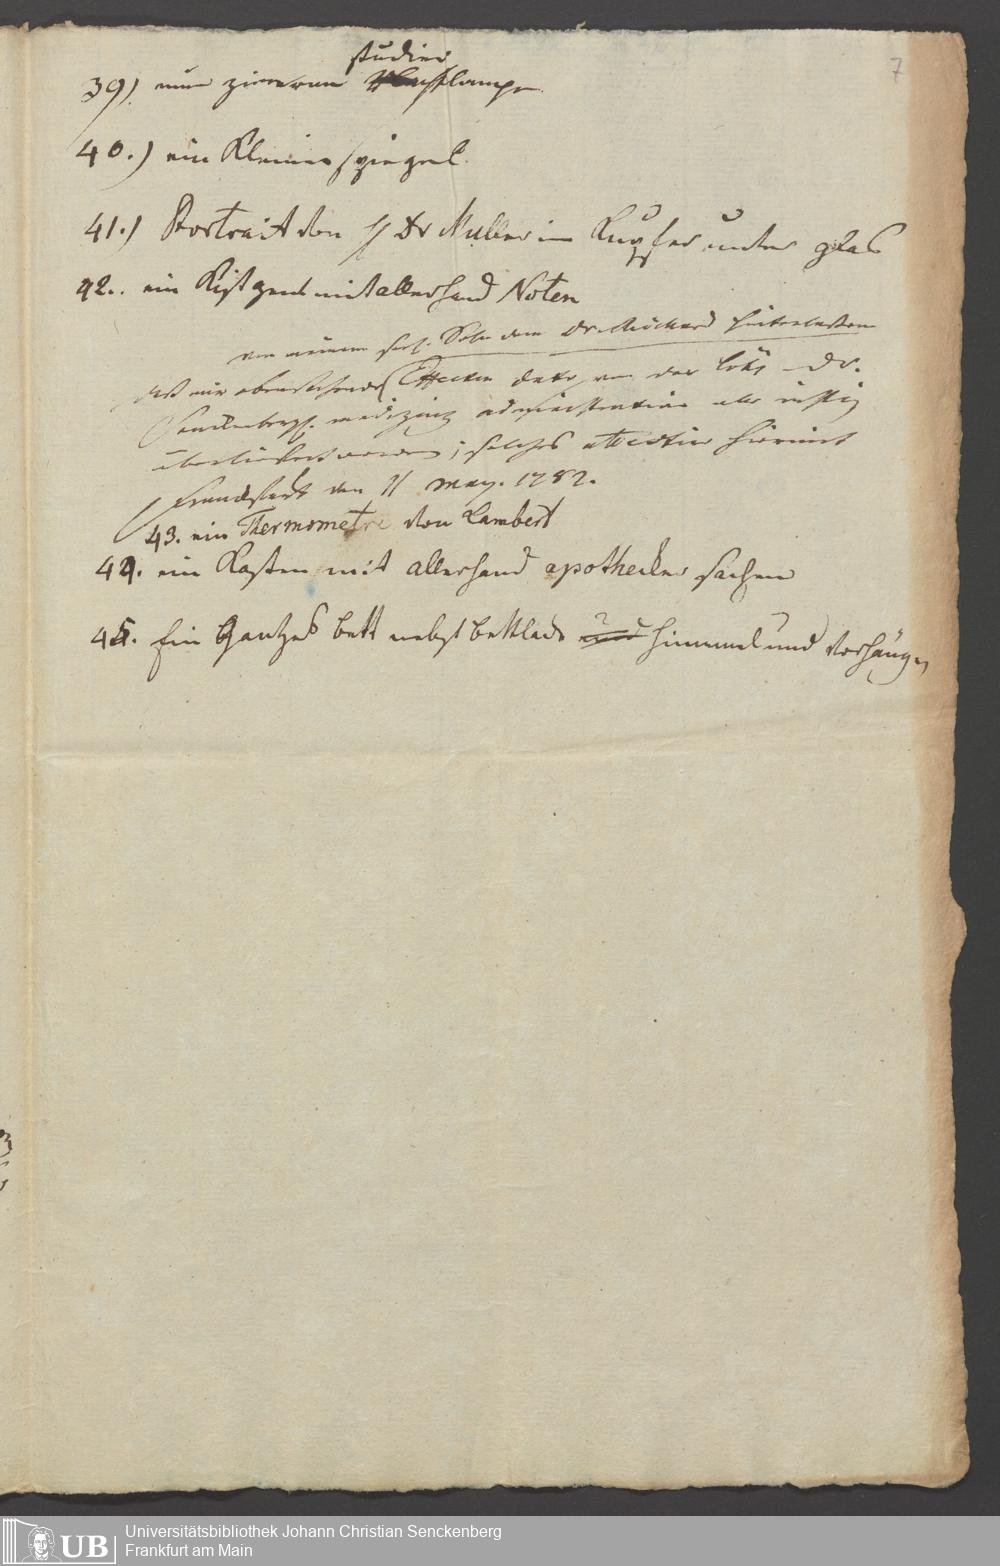 7
studier
39) eine zinnerne lampe
40.) ein Kleiner spiegel.
41.) Portrait von H Dr Muller in Kupfer unter glas
42.. ein Kistgent mit allerhand Noten
von meinem seel. Sohn dem Dr. hinterlassen
daß mir obenstehende Effecten dato von der löbl. Dr.
Senckenbergs. administration richtig
überliefert worden, solches hiermit
Franckfurt den 11 may. 1782.
43. ein Thermometre von Lambert
44. ein Kasten mit allerhand apothecker sachen
45. Ein gantzes bett nebst bettlade und himmel und vorhäng
Universitätsbibliothek Johann Christian Senckenberg
Frankfurt am Main
UB